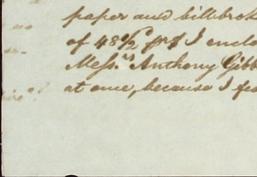 paper and billbrok
of 48½ pr I enclo
Mess.rs Anthony Gibb
at once, because I fea